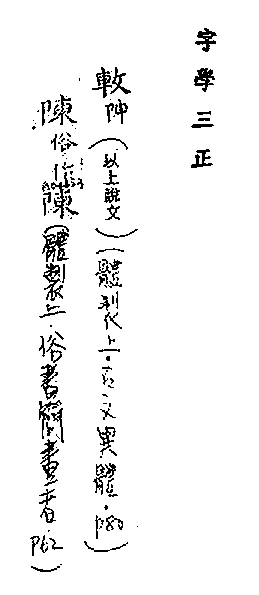 字學三正
軙𨸬(以上說文)(體製上.古文異體.P80)
陳俗作陳(體製上.俗書簡畫者.P62)